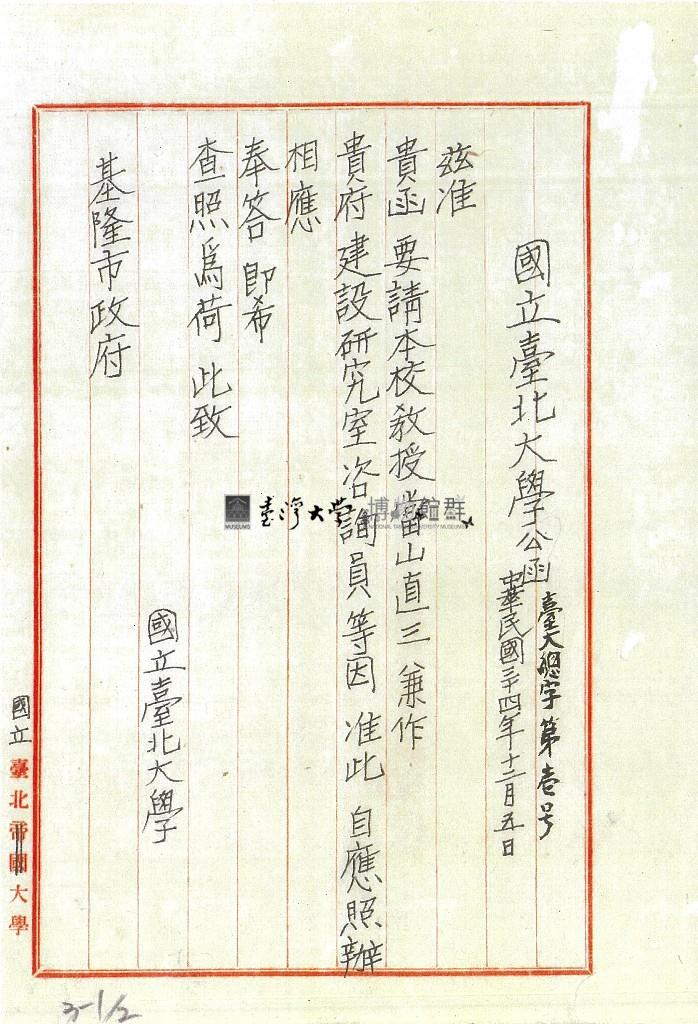 國立臺北大學公函
臺大總字第壱号
中華民國三十四年十二月五日
茲准
貴函 要請本校教授當山直三 兼作
貴府 建設研究室咨詢員等因 准此 自應照辦
相應
奉答 即希
查照為荷 此致
國立臺北大學
基隆市政府
國立臺北帝國大學
臺灣大學 博物館群
MUSEUMS
NATIONAL TAIWAN UNIVERSITY MUSEUMS
3-1/2